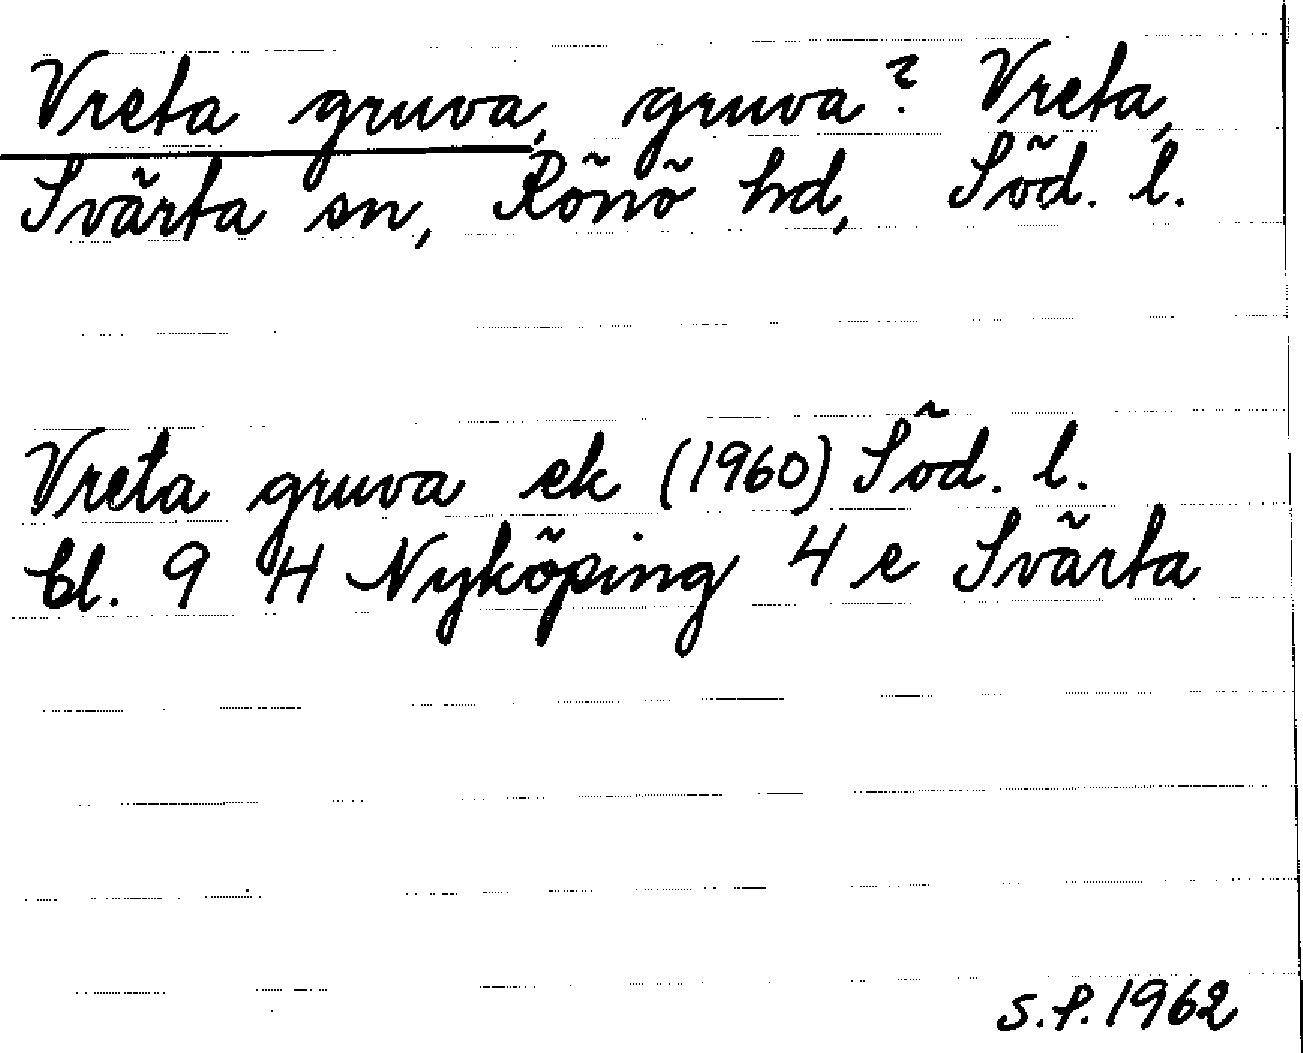 Vreta gruva, gruva? Vreta,
Svärta sn, Rönö hd, Söd. l.
Vreta gruva ek (1960) Söd. l.
bl. 9 H Nyköping 4 e Svärta
S.P. 1962